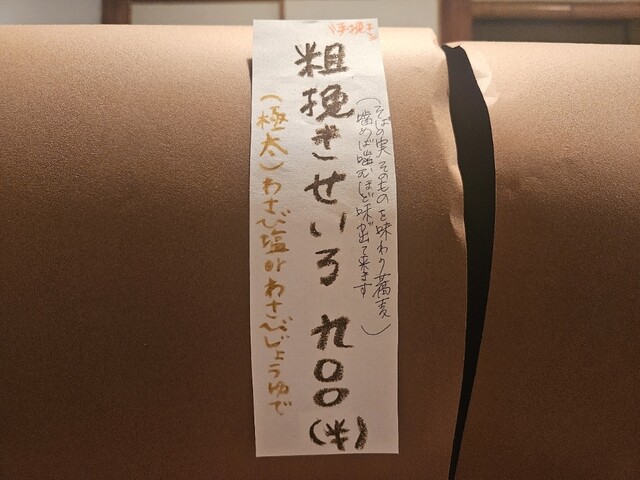 手挽き
粗挽きせいろ 九〇〇(半)
(そばの実そのものを味わう蕎麦)
噛めば噛むほど味が出て来ます
(極太)わさび塩orわさびじょうゆで